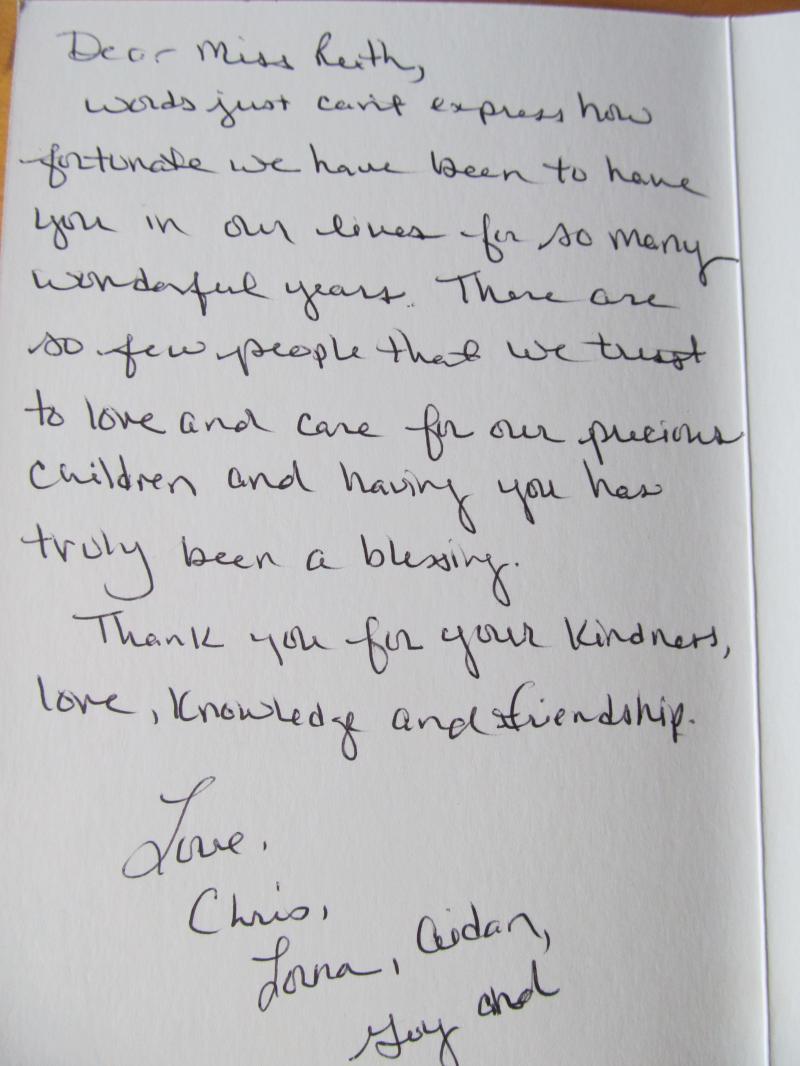 Dear Miss Reith,
words just can't express how
fortunate we have been to have
you in our lives for so many
wonderful years. There are
so few people that we trust
to love and care for our precious
children and having you has
truly been a blessing.
Thank you for your kindness,
love, knowledge and friendship.
Love,
Chris,
Lorna, Aidan,
Guy and